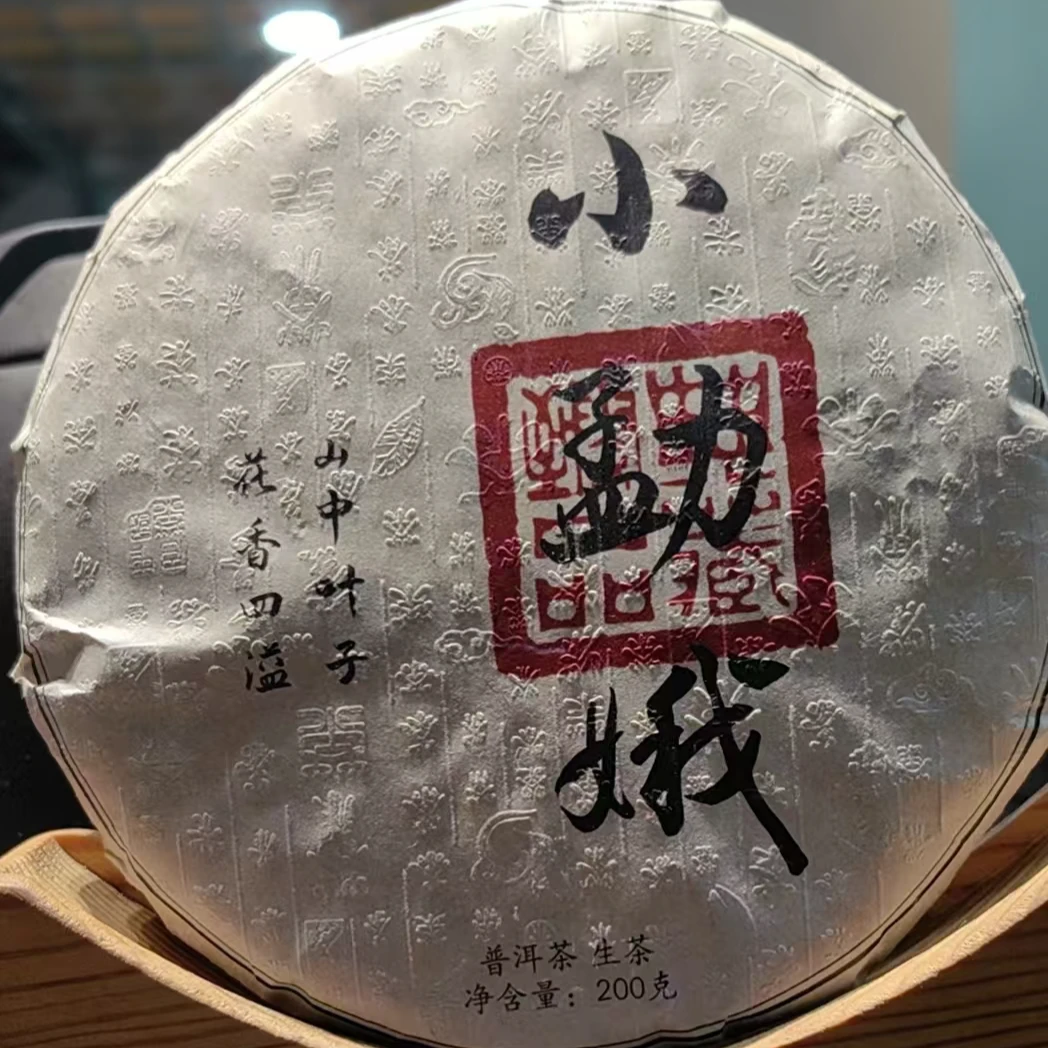 小勐娥
山中叶子
花香四溢
普洱茶 生茶
净含量：200克